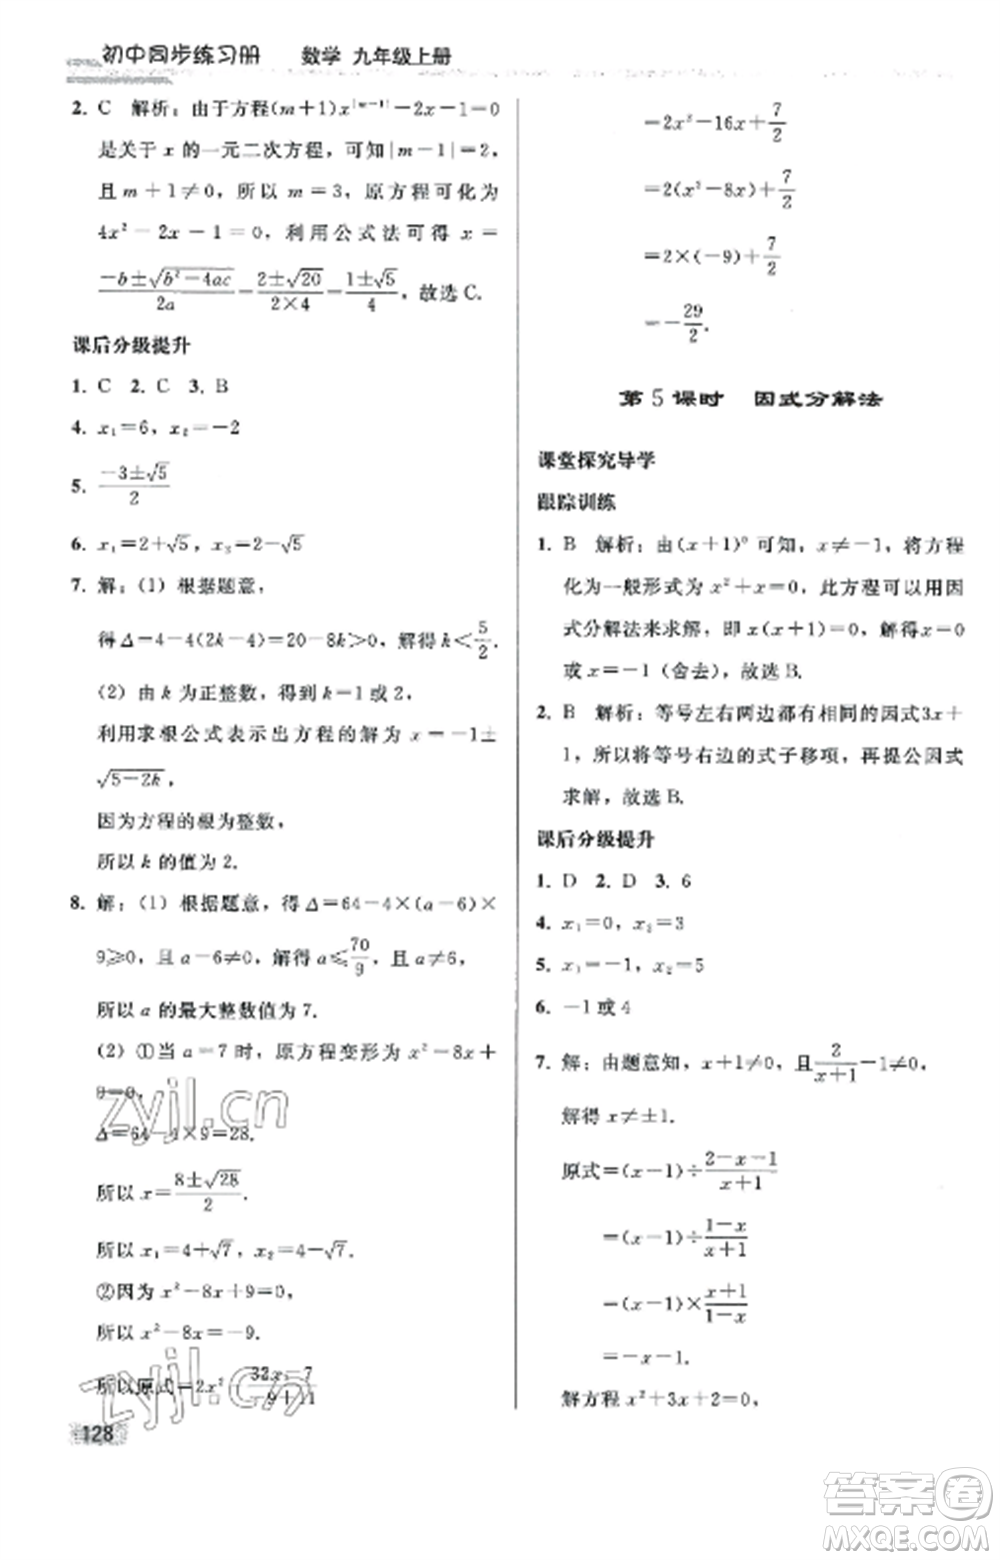 初中同步练习册 数学 九年级上册
2. C 解析：由于方程(m+1)x^|m-1|-2x-1=0
是关于 x 的一元二次方程，可知|m-1|=2，
且 m+1≠0，所以 m=3，原方程可化为
4x²-2x-1=0，利用公式法可得 x=
(-b±√(b²-4ac))/2a=(2±√20)/(2×4)=(1±√5)/4，故选 C.
课后分级提升
1. C 2. C 3. B
4. x₁=6，x₂=-2
5. (-3±√5)/2
6. x₁=2+√5，x₂=2-√5
7. 解：(1) 根据题意，
得 Δ=4-4(2k-4)=20-8k>0，解得 k<5/2.
(2) 由 k 为正整数，得到 k=1 或 2，
利用求根公式表示出方程的解为 x=-1±
√(5-2k)，
因为方程的根为整数，
所以 k 的值为 2.
8. 解：(1) 根据题意，得 Δ=64-4×(a-6)×
9≥0，且 a-6≠0，解得 a≤70/9，且 a≠6，
所以 a 的最大整数值为 7.
(2) ①当 a=7 时，原方程变形为 x²-8x+
9=0，
Δ=64-4×9=28.
所以 x=(8±√28)/2.
所以 x₁=4+√7，x₂=4-√7.
②因为 x²-8x+9=0，
所以 x²-8x=-9.
所以原式=2x²-(32x-7)/(-9+11)
128
=2x²-16x+7/2
=2(x²-8x)+7/2
=2×(-9)+7/2
=-29/2.
第 5 课时 因式分解法
课堂探究导学
跟踪训练
1. B 解析：由(x+1)⁰ 可知，x≠-1，将方程
化为一般形式为 x²+x=0，此方程可以用因
式分解法来求解，即 x(x+1)=0，解得 x=0
或 x=-1 (舍去)，故选 B.
2. B 解析：等号左右两边都有相同的因式3x+
1，所以将等号右边的式子移项，再提公因式
求解，故选 B.
课后分级提升
1. D 2. D 3. 6
4. x₁=0，x₂=3
5. x₁=-1，x₂=5
6. -1 或 4
7. 解：由题意知，x+1≠0，且2/(x+1)-1≠0，
解得 x≠±1.
原式=(x-1)÷(2-x-1)/(x+1)
=(x-1)÷(1-x)/(x+1)
=(x-1)×(x+1)/(1-x)
=-x-1.
解方程 x²+3x+2=0，
zyjl.cn
zyjl.cn
答案圈
MXQE.COM